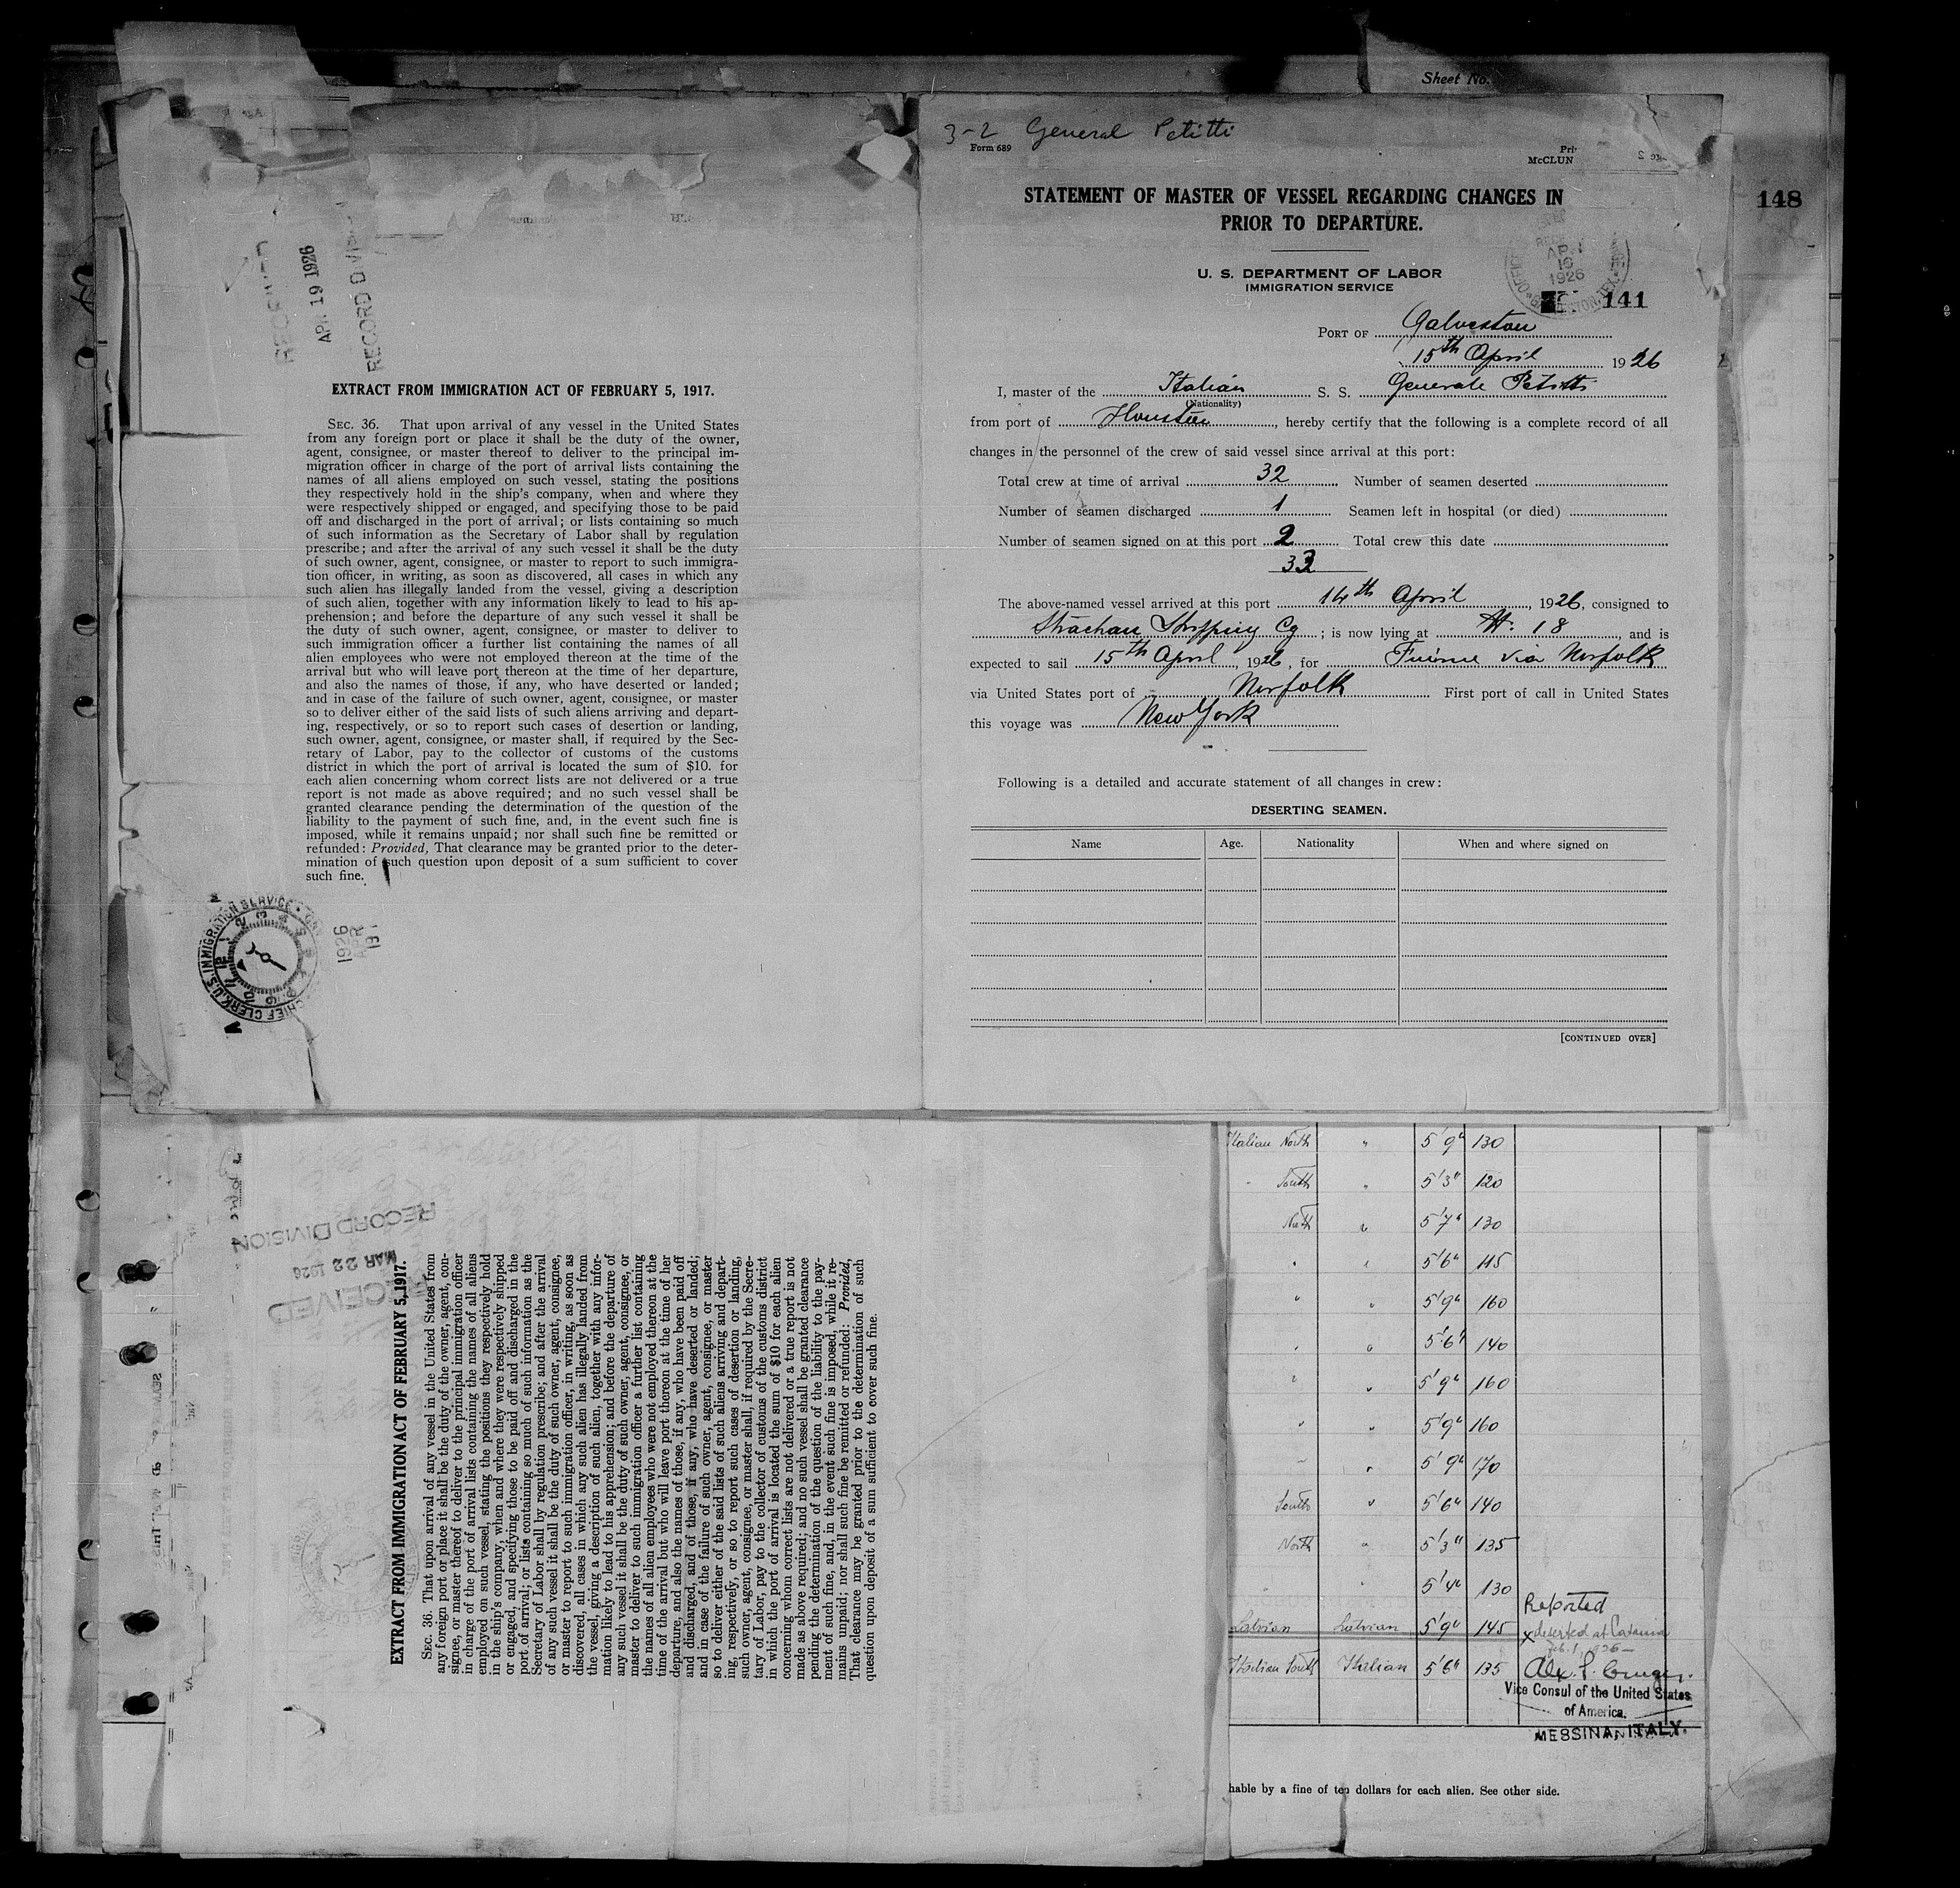 Sheet No.
3-2 General Petitti
Form 689
McCLUN
STATEMENT OF MASTER OF VESSEL REGARDING CHANGES IN
PRIOR TO DEPARTURE.
148
U. S. DEPARTMENT OF LABOR
IMMIGRATION SERVICE
APR
15
1926
141
PORT OF Galveston
15th April 1926
I, master of the Italian S. S. Generale Petitti
(Nationality)
from port of Houston, hereby certify that the following is a complete record of all
changes in the personnel of the crew of said vessel since arrival at this port:
Total crew at time of arrival 32 Number of seamen deserted
Number of seamen discharged 1 Seamen left in hospital (or died)
Number of seamen signed on at this port 2 Total crew this date
33
The above-named vessel arrived at this port 14th April, 1926, consigned to
Strachan Shipping Co; is now lying at 18, and is
expected to sail 15th April, 1926, for Fiume via Norfolk
via United States port of Norfolk First port of call in United States
this voyage was New York
Following is a detailed and accurate statement of all changes in crew:
DESERTING SEAMEN.
Name Age. Nationality When and where signed on
[CONTINUED OVER]
RECEIVED
APR 19 1926
RECORD DIVISION
EXTRACT FROM IMMIGRATION ACT OF FEBRUARY 5, 1917.
SEC. 36. That upon arrival of any vessel in the United States
from any foreign port or place it shall be the duty of the owner,
agent, consignee, or master thereof to deliver to the principal im-
migration officer in charge of the port of arrival lists containing the
names of all aliens employed on such vessel, stating the positions
they respectively hold in the ship's company, when and where they
were respectively shipped or engaged, and specifying those to be paid
off and discharged in the port of arrival; or lists containing so much
of such information as the Secretary of Labor shall by regulation
prescribe; and after the arrival of any such vessel it shall be the duty
of such owner, agent, consignee, or master to report to such immigra-
tion officer, in writing, as soon as discovered, all cases in which any
such alien has illegally landed from the vessel, giving a description
of such alien, together with any information likely to lead to his ap-
prehension; and before the departure of any such vessel it shall be
the duty of such owner, agent, consignee, or master to deliver to
such immigration officer a further list containing the names of all
alien employees who were not employed thereon at the time of the
arrival but who will leave port thereon at the time of her departure,
and also the names of those, if any, who have deserted or landed;
and in case of the failure of such owner, agent, consignee, or master
so to deliver either of the said lists of such aliens arriving and depart-
ing, respectively, or so to report such cases of desertion or landing,
such owner, agent, consignee, or master shall, if required by the Sec-
retary of Labor, pay to the collector of customs of the customs
district in which the port of arrival is located the sum of $10. for
each alien concerning whom correct lists are not delivered or a true
report is not made as above required; and no such vessel shall be
granted clearance pending the determination of the question of the
liability to the payment of such fine, and, in the event such fine is
imposed, while it remains unpaid; nor shall such fine be remitted or
refunded: Provided, That clearance may be granted prior to the deter-
mination of such question upon deposit of a sum sufficient to cover
such fine.
CHIEF CLERK, U.S. IMMIGRATION SERVICE
1926
APR
19
RECEIVED
MAR 22 1926
RECORD DIVISION
EXTRACT FROM IMMIGRATION ACT OF FEBRUARY 5, 1917.
SEC. 36. That upon arrival of any vessel in the United States from
any foreign port or place it shall be the duty of the owner, agent, con-
signee, or master thereof to deliver to the principal immigration officer
in charge of the port of arrival lists containing the names of all aliens
employed on such vessel, stating the positions they respectively hold
in the ship's company, when and where they were respectively shipped
or engaged, and specifying those to be paid off and discharged in the
port of arrival; or lists containing so much of such information as the
Secretary of Labor shall by regulation prescribe; and after the arrival
of any such vessel it shall be the duty of such owner, agent, consignee,
or master to report to such immigration officer, in writing, as soon as
discovered, all cases in which any such alien has illegally landed from
the vessel, giving a description of such alien, together with any infor-
mation likely to lead to his apprehension; and before the departure of
any such vessel it shall be the duty of such owner, agent, consignee, or
master to deliver to such immigration officer a further list containing
the names of all alien employees who were not employed thereon at the
time of the arrival but who will leave port thereon at the time of her
departure, and also the names of those, if any, who have been paid off
and discharged, and of those, if any, who have deserted or landed;
and in case of the failure of such owner, agent, consignee, or master
so to deliver either of the said lists of such aliens arriving and depart-
ing, respectively, or so to report such cases of desertion or landing,
such owner, agent, consignee, or master shall, if required by the Secre-
tary of Labor, pay to the collector of customs of the customs district
in which the port of arrival is located the sum of $10 for each alien
concerning whom correct lists are not delivered or a true report is not
made as above required; and no such vessel shall be granted clearance
pending the determination of the question of the liability to the pay-
ment of such fine, and, in the event such fine is imposed, while it re-
mains unpaid; nor shall such fine be remitted or refunded: Provided,
That clearance may be granted prior to the determination of such
question upon deposit of a sum sufficient to cover such fine.
Italian North " 5'9" 130
" South " 5'3" 120
North " 5'7" 130
" " 5'6" 115
" " 5'9" 160
" " 5'6" 140
" " 5'9" 160
" " 5'9" 160
" " 5'9" 170
South " 5'6" 140
North " 5'3" 135
" " 5'4" 130
Latvian Latvian 5'9" 145
Reported
x deserted at Catania
Feb. 1, 1926
Italian South Italian 5'6" 135
Vice Consul of the United States
of America.
MESSINA, ITALY.
hable by a fine of ten dollars for each alien. See other side.